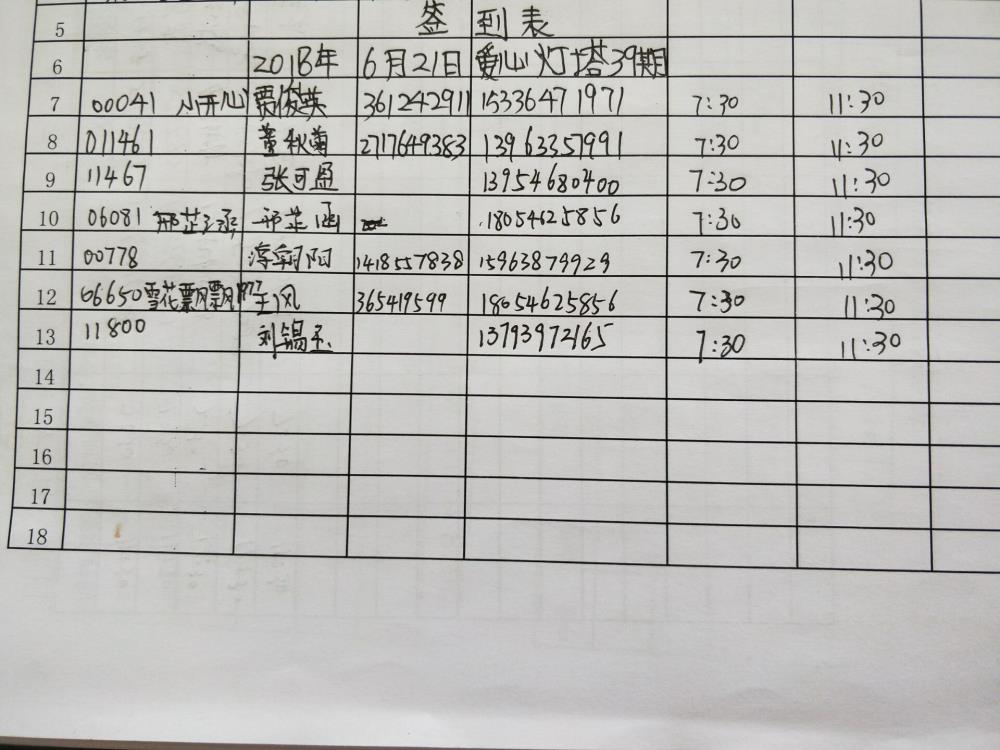 5 签到表
6 2018年 6月21日 爱心灯塔39期
7 00041 小开心 贾俊英 361242911 15336471971 7:30 11:30
8 011461 董秋菊 2717649383 13963357991 7:30 11:30
9 11467 张可盈 13954680400 7:30 11:30
10 06081 邢芷涵 邢芷涵 18054625856 7:30 11:30
11 00778 淳朝阳 1418557838 15963879929 7:30 11:30
12 06650 雪花飘飘 王风 365419599 18054625856 7:30 11:30
13 11800 刘锡玉 13793972165 7:30 11:30
14
15
16
17
18